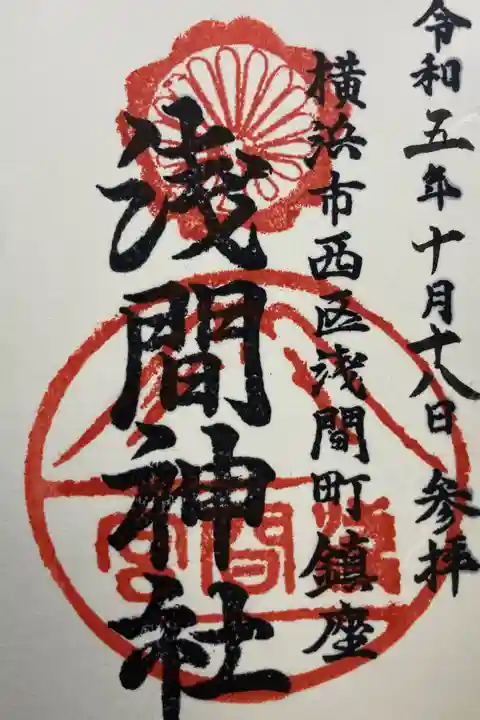 令和五年十月十八日 参拝
横浜市西区浅間町鎮座
淺間神社
淺間宮